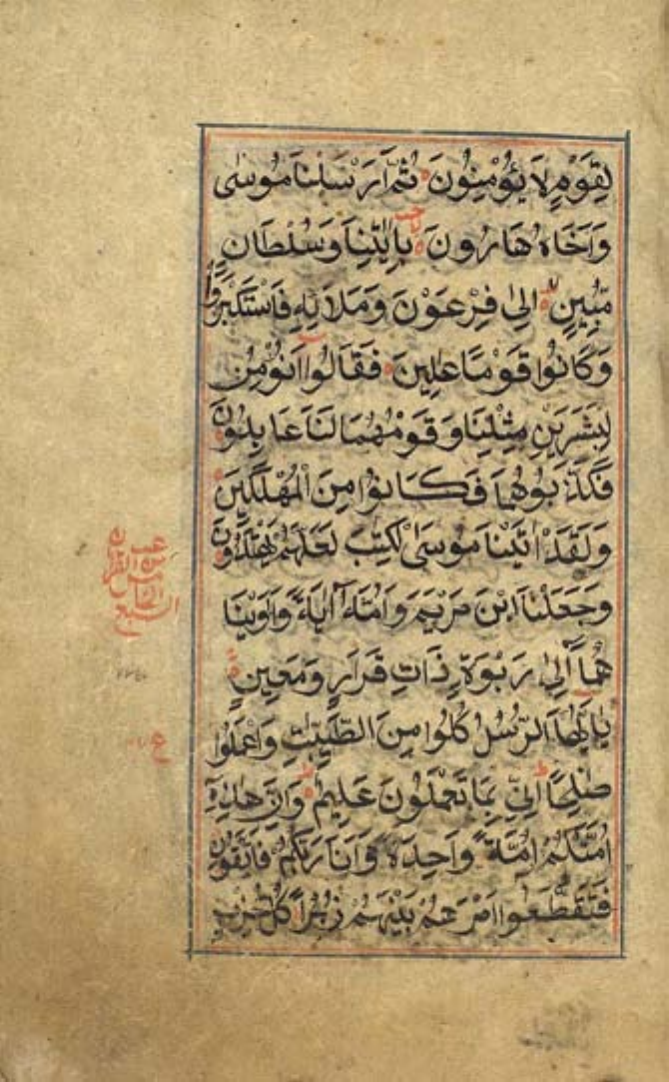 لِقَوْمٍ لَا يُؤْمِنُونَ ثُمَّ اَرْسَلْنَا مُوسٰى
وَاَخَاهُ هَارُونَ بِاٰيٰتِنَا وَسُلْطَانٍ
مُّبِينٍ اِلٰى فِرْعَوْنَ وَمَلَائِهِ فَاسْتَكْبَرُوا
وَكَانُوا قَوْمًا عَالِينَ فَقَالُوا اَنُؤْمِنُ
لِبَشَرَيْنِ مِثْلِنَا وَقَوْمُهُمَا لَنَا عَابِدُونَ
فَكَذَّبُوهُمَا فَكَانُوا مِنَ الْمُهْلَكِينَ
وَلَقَدْ اٰتَيْنَا مُوسَى الْكِتٰبَ لَعَلَّهُمْ يَهْتَدُونَ
وَجَعَلْنَا ابْنَ مَرْيَمَ وَاُمَّهُ اٰيَةً وَاٰوَيْنَا
هُمَا اِلٰى رَبْوَةٍ ذَاتِ قَرَارٍ وَمَعِينٍ
يَا اَيُّهَا الرُّسُلُ كُلُوا مِنَ الطَّيِّبٰتِ وَاعْمَلُوا
صٰلِحًا اِنِّي بِمَا تَعْمَلُونَ عَلِيمٌ وَاِنَّ هٰذِهِ
اُمَّتُكُمْ اُمَّةً وَاحِدَةً وَاَنَا رَبُّكُمْ فَاتَّقُونِ
فَتَقَطَّعُوا اَمْرَهُمْ بَيْنَهُمْ زُبُرًا كُلُّ حِزْبٍ